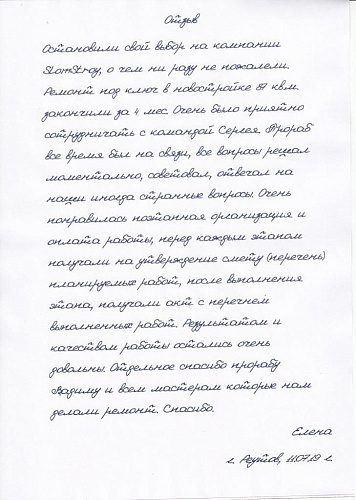 Отзыв
Остановили свой выбор на компании
SlomStroy, о чем ни разу не пожалели.
Ремонт под ключ в новостройке 87 квм.
закончили за 4 мес. Очень было приятно
сотрудничать с командой Сергея. Прораб
все время был на связи, все вопросы решал
моментально, советовал, отвечал на
наши иногда странные вопросы. Очень
понравилась поэтапная организация и
оплата работы, перед каждым этапом
получали на утверждение смету (перечень)
планируемых работ, после выполнения
этапа, получали акт с перечнем
выполненных работ. Результатом и
качеством работы остались очень
довольны. Отдельное спасибо прорабу
Вадиму и всем мастерам которые нам
делали ремонт. Спасибо.
Елена
г. Реутов, 11.07.19 г.